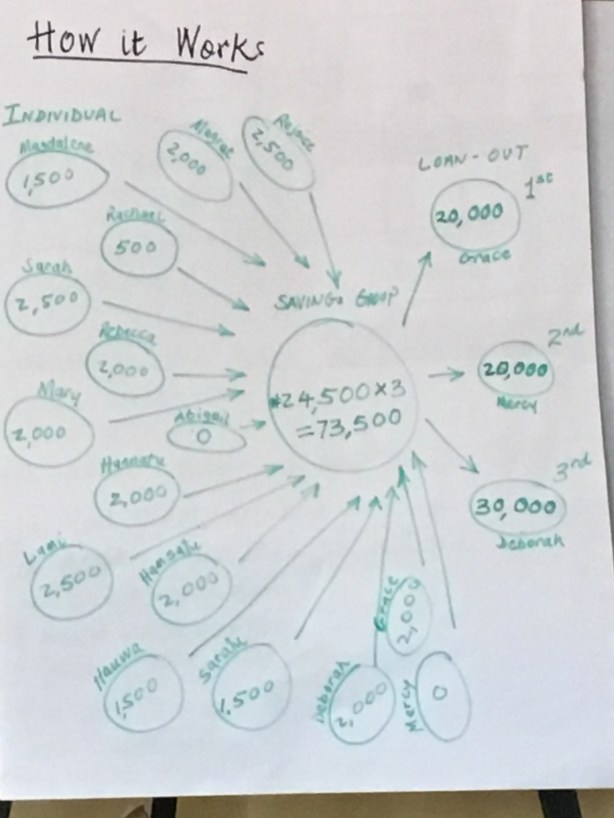 How it Works
INDIVIDUAL
Magdalene
1,500
2,000
Rejoice
2,500
LOAN-OUT
1st
20,000
Grace
Rachael
500
Sarah
2,500
SAVINGS GROUP
Rebecca
2,000
24,500x3
=73,500
2nd
20,000
Mercy
Mary
2,000
Abigail
0
3rd
30,000
Deborah
Hannatu
2,000
Lami
2,500
Hamsatu
2,000
Grace
2,000
Hauwa
1,500
Sarah
1,500
Deborah
2,000
Mercy
0